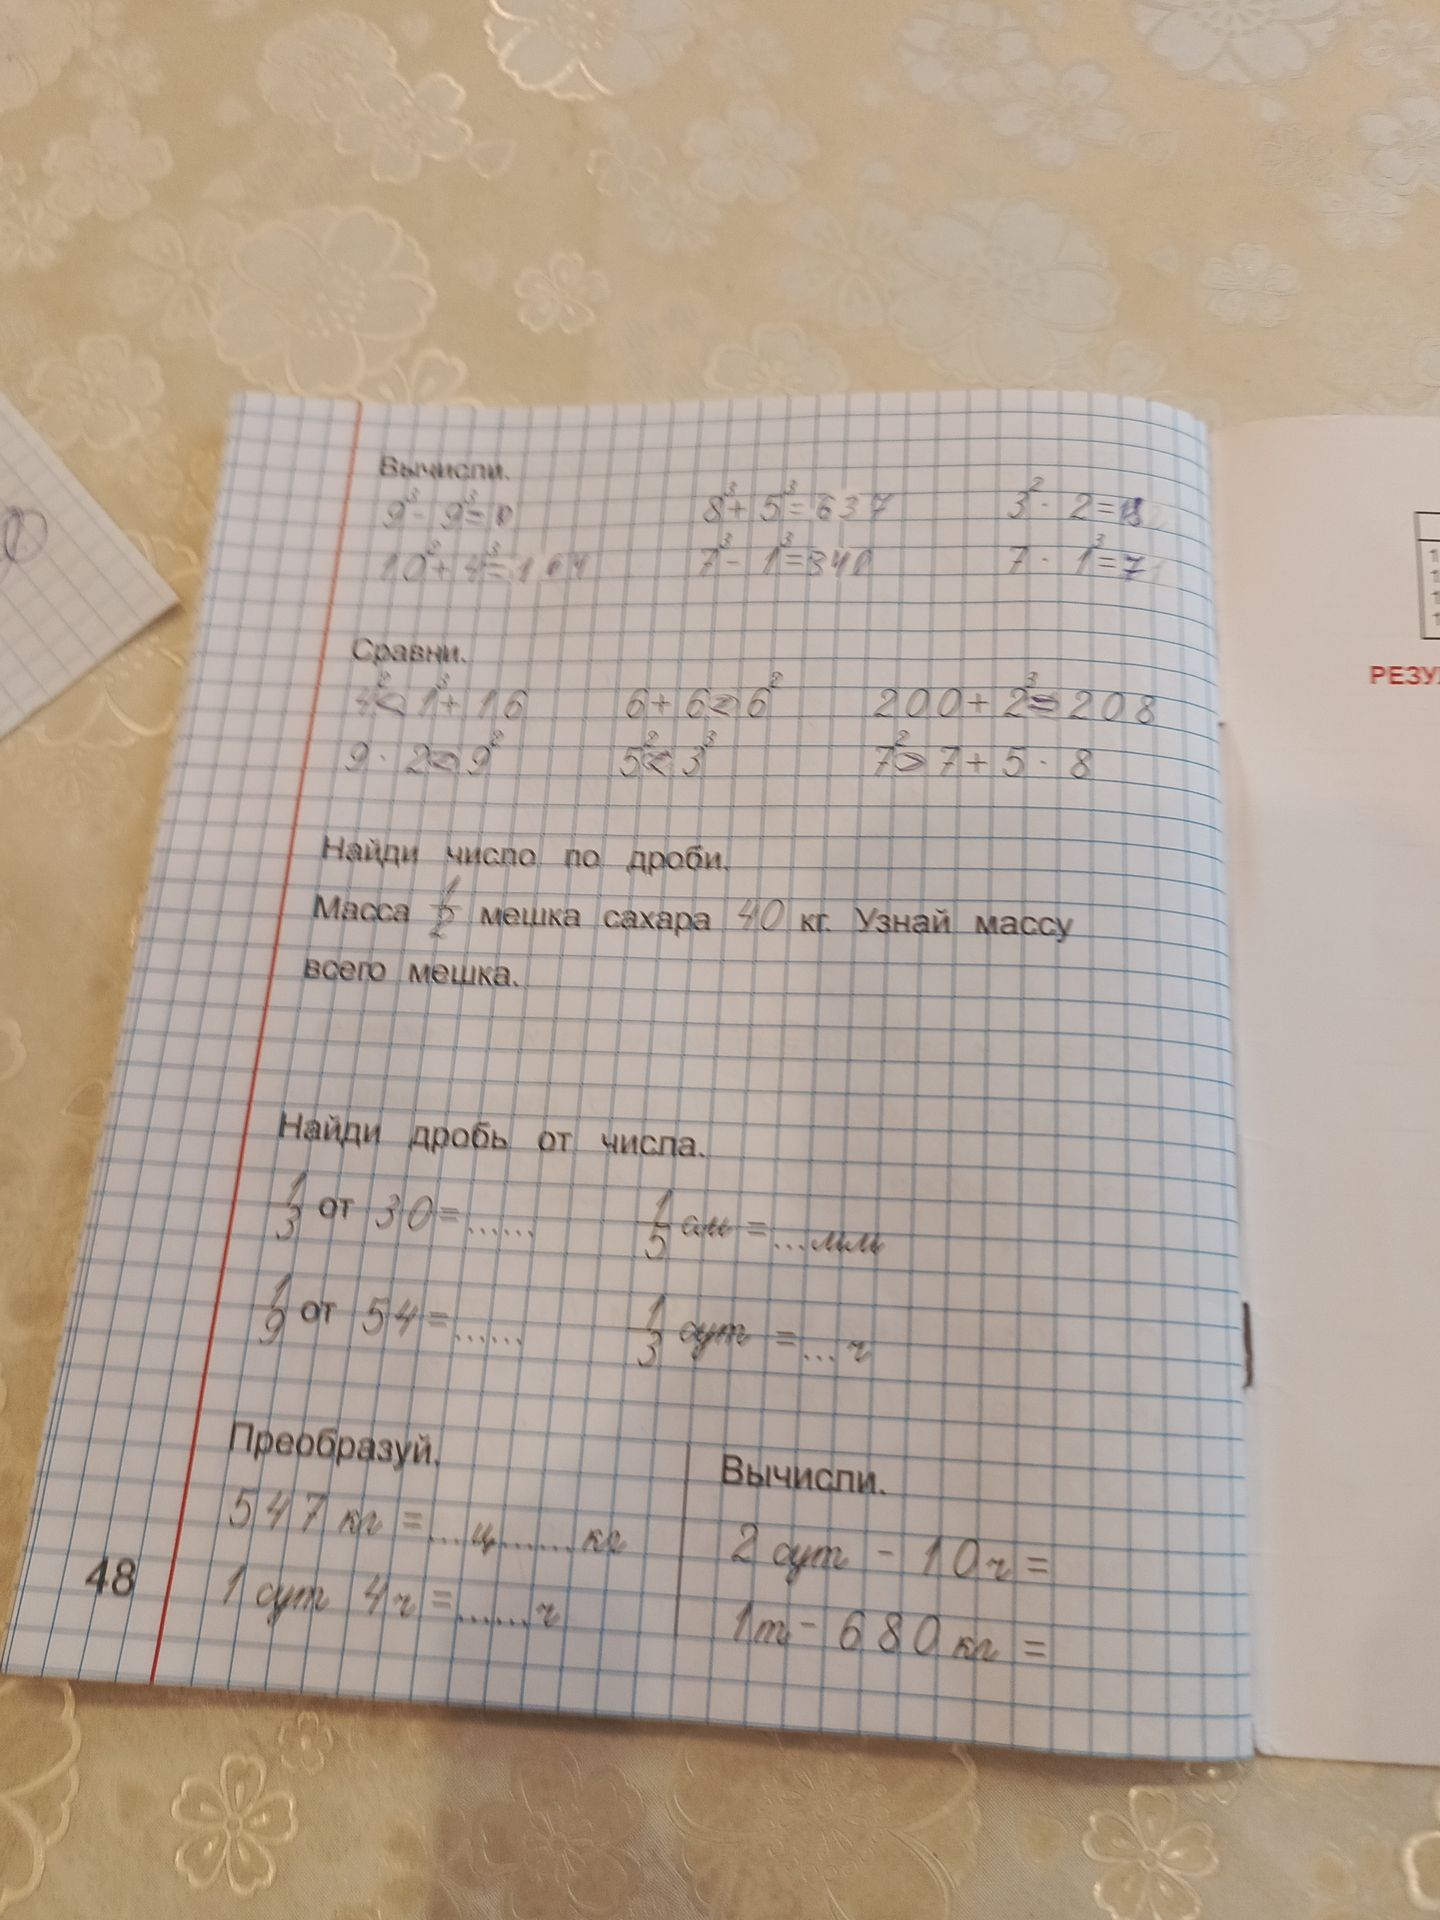 Вычисли.
9³ - 9³ = 0 8³ + 5³ = 637 3² · 2 = 18
10² + 4³ = 164 7³ - 1³ = 340 7 · 1³ = 7
Сравни.
4² < 1³ + 16 6 + 6 < 6² 200 + 2³ = 208
9 · 2 < 9² 5² < 3³ 7² > 7 + 5 · 8
Найди число по дроби.
Масса 1/2 мешка сахара 40 кг. Узнай массу
всего мешка.
Найди дробь от числа.
1/3 от 30 = ...... 1/5 см = ...мм
1/9 от 54 = ...... 1/3 сут = ...ч
Преобразуй.
547 кг = ...ц......кг
1 сут 4 ч = ......ч
Вычисли.
2 сут - 10 ч =
1 т - 680 кг =
48
РЕЗУ